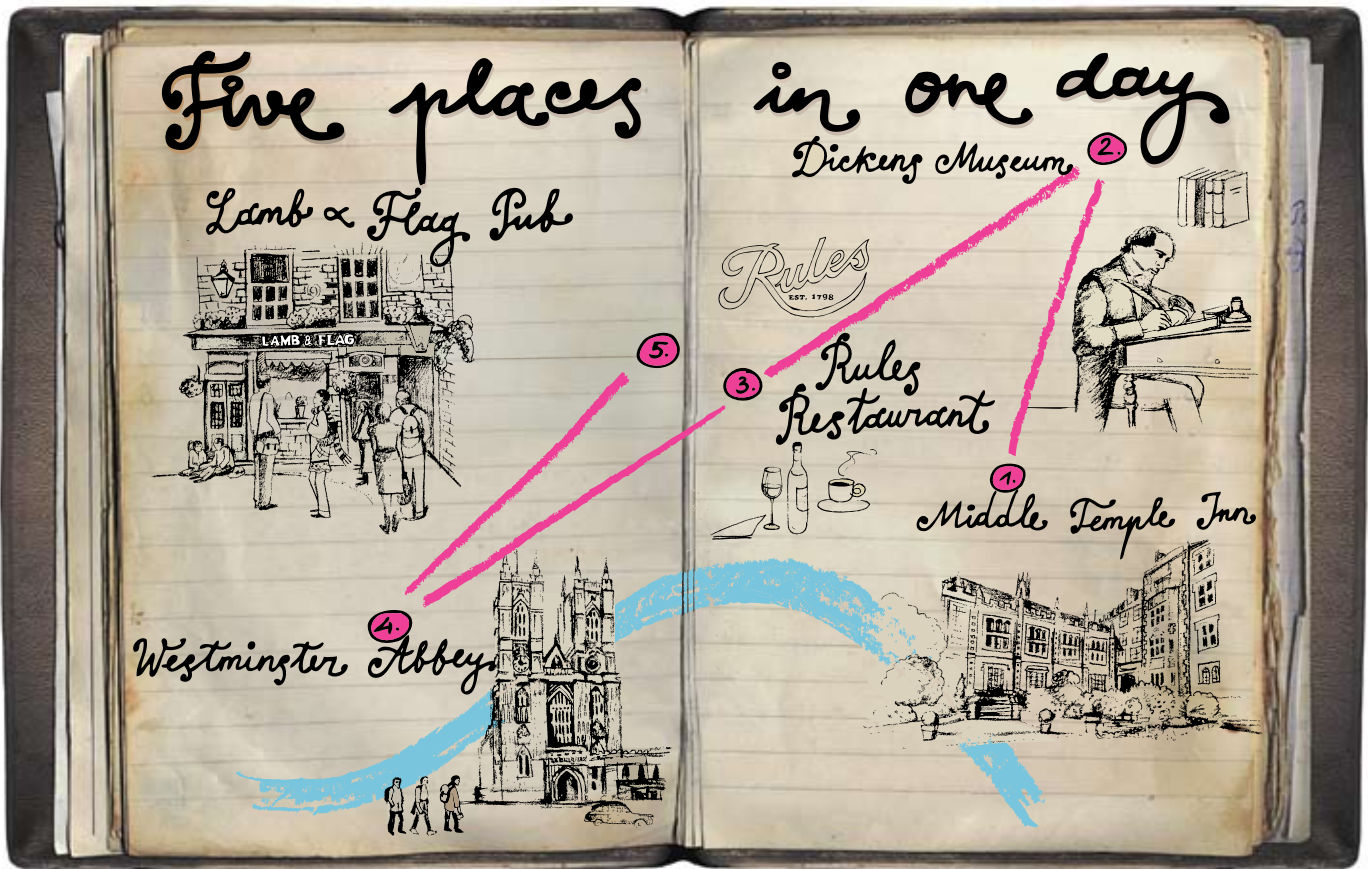 Five places in one day
Lamb & Flag Pub
LAMB & FLAG
5.
4.
Westminster Abbey
Dickens Museum
2.
Rules
EST. 1798
3.
Rules
Restaurant
1.
Middle Temple Inn